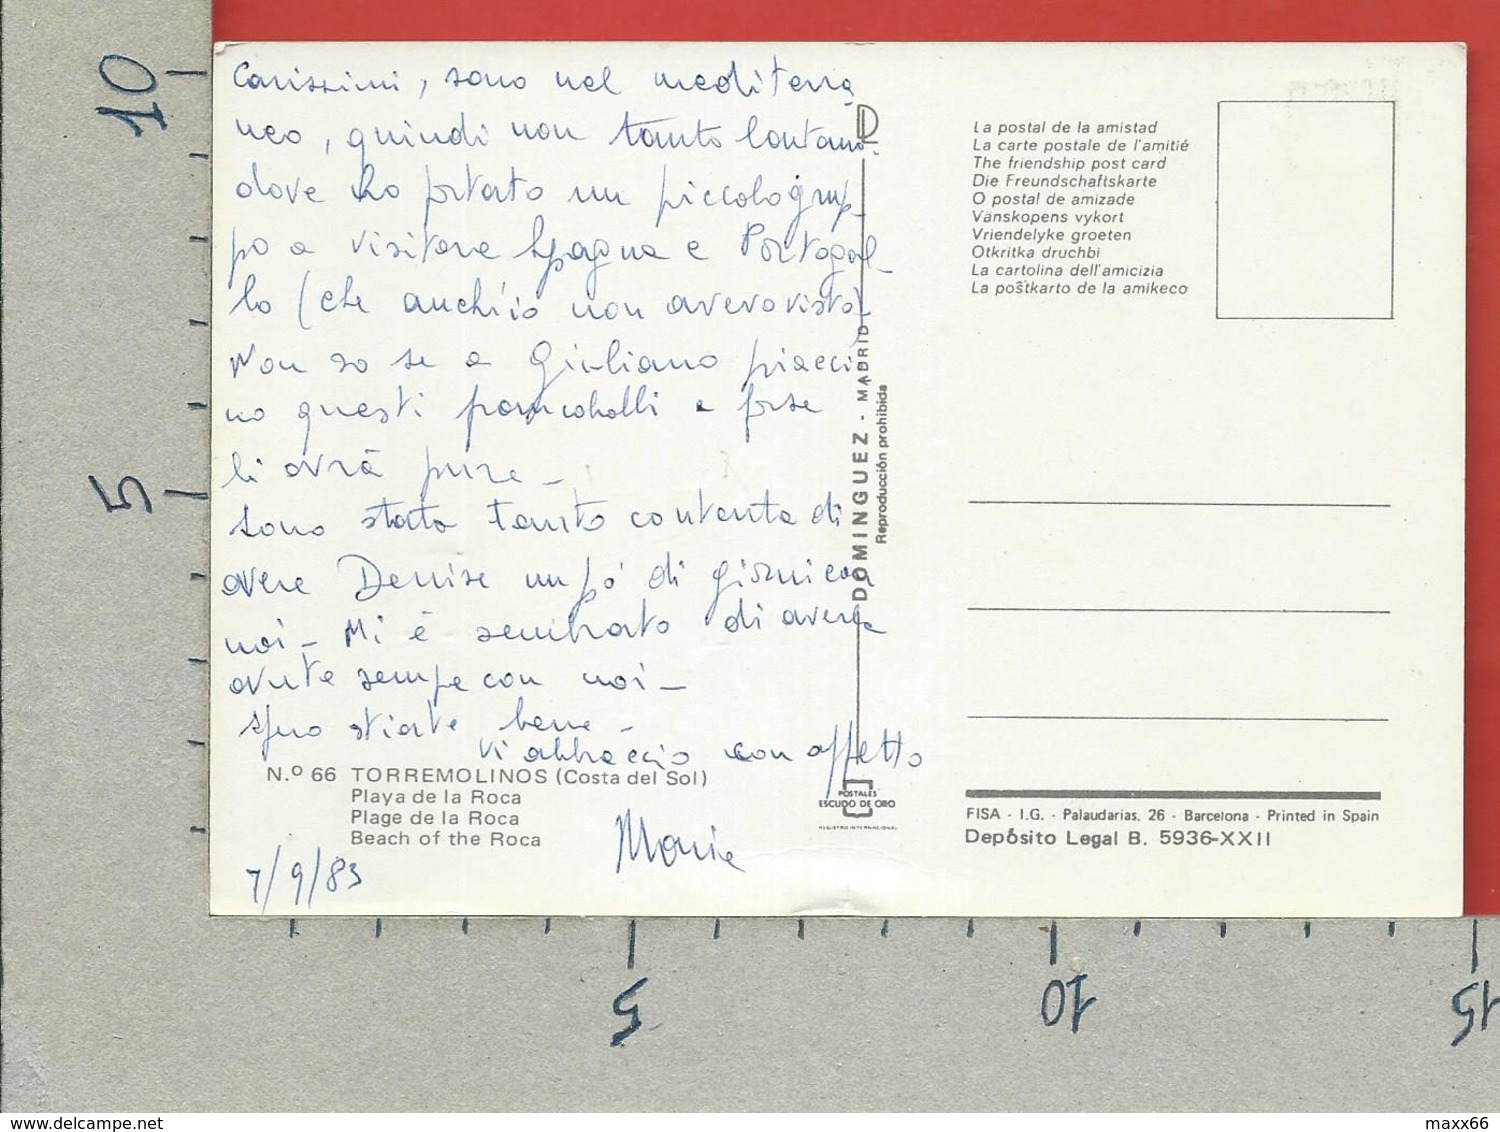 Carissimi, sono nel mediterra
neo, quindi non tanto lontano.
dove ho portato un piccolo grup_
po a visitare Spagna e Portogal_
lo (che anch'io non avevo visto)
Non so se a Giuliano piacci
no questi francobolli e forse
li avrà pure _
Sono stata tanto contenta di
avere Denise un pó di giorni con
noi _ Mi è sembrato di averla
avute sempe con noi _
Spero stiate bene _
Vi abbraccio con affetto
N.º 66 TORREMOLINOS (Costa del Sol)
Playa de la Roca
Plage de la Roca
Beach of the Roca
7/9/83
DOMINGUEZ - MADRID
Reproducción prohibida
POSTALES
ESCUDO DE ORO
REGISTRO INTERNACIONAL
La postal de la amistad
La carte postale de l'amitié
The friendship post card
Die Freundschaftskarte
O postal de amizade
Vänskopens vykort
Vriendelyke groeten
Otkritka druchbi
La cartolina dell'amicizia
La poŝtkarto de la amikeco
FISA - I.G. - Palaudarias, 26 - Barcelona - Printed in Spain
Depósito Legal B. 5936-XXII
10
5
5
10
15
delcampe.net
maxx66